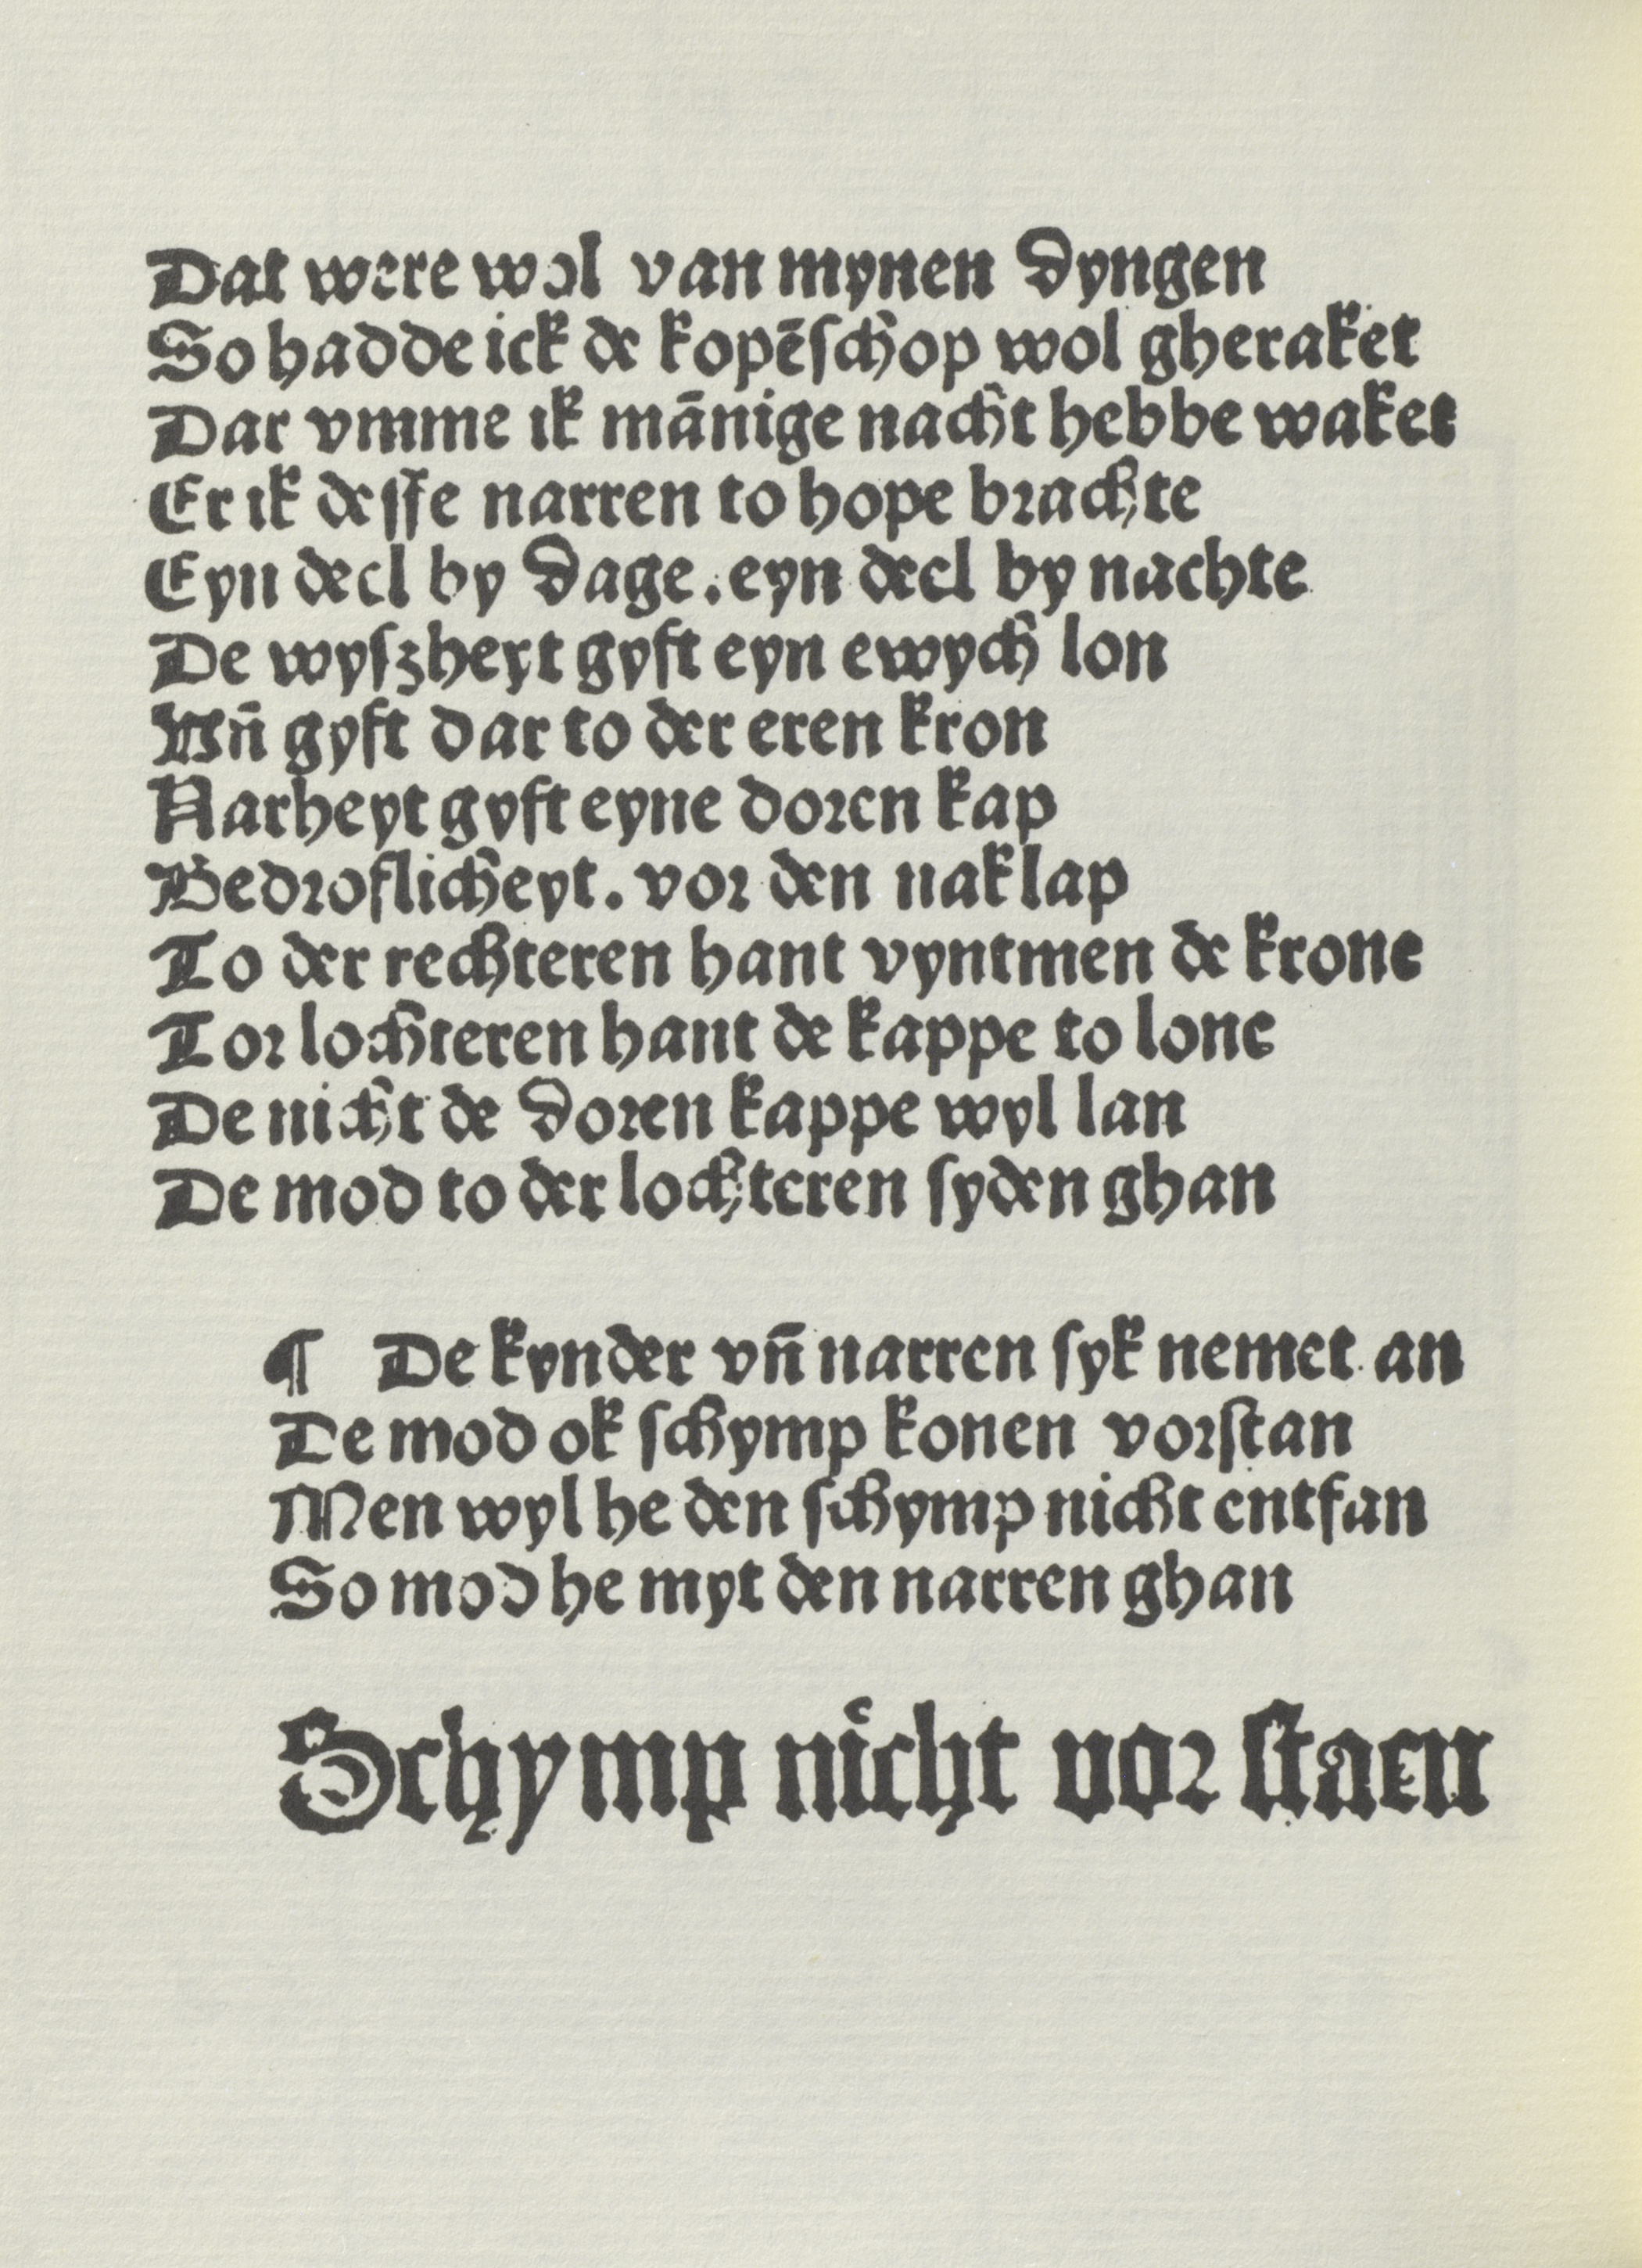 Dat were wol van mynen dyngen
So hadde ick de kopēſchop wol gheraket
Dar vmme ik mānige nacht hebbe waket
Er ik deſſe narren to hope brachte
Eyn deel by dage. eyn deel by nachte
De wyſzheyt gyft eyn ewych lon
Vn̄ gyft dar to der eren kron
Narheyt gyft eyne doren kap
Bedroflicheyt. vor den naklap
To der rechteren hant vyntmen de krone
Tor lochteren hant de kappe to lone
De nicht de doren kappe wyl lan
De mod to der lochteren ſyden ghan
¶ De kynder vn̄ narren ſyk nemet an
De mod ok ſchymp konen vorſtan
Men wyl he den ſchymp nicht entfan
So mod he myt den narren ghan
Schymp nicht vor ſtaen